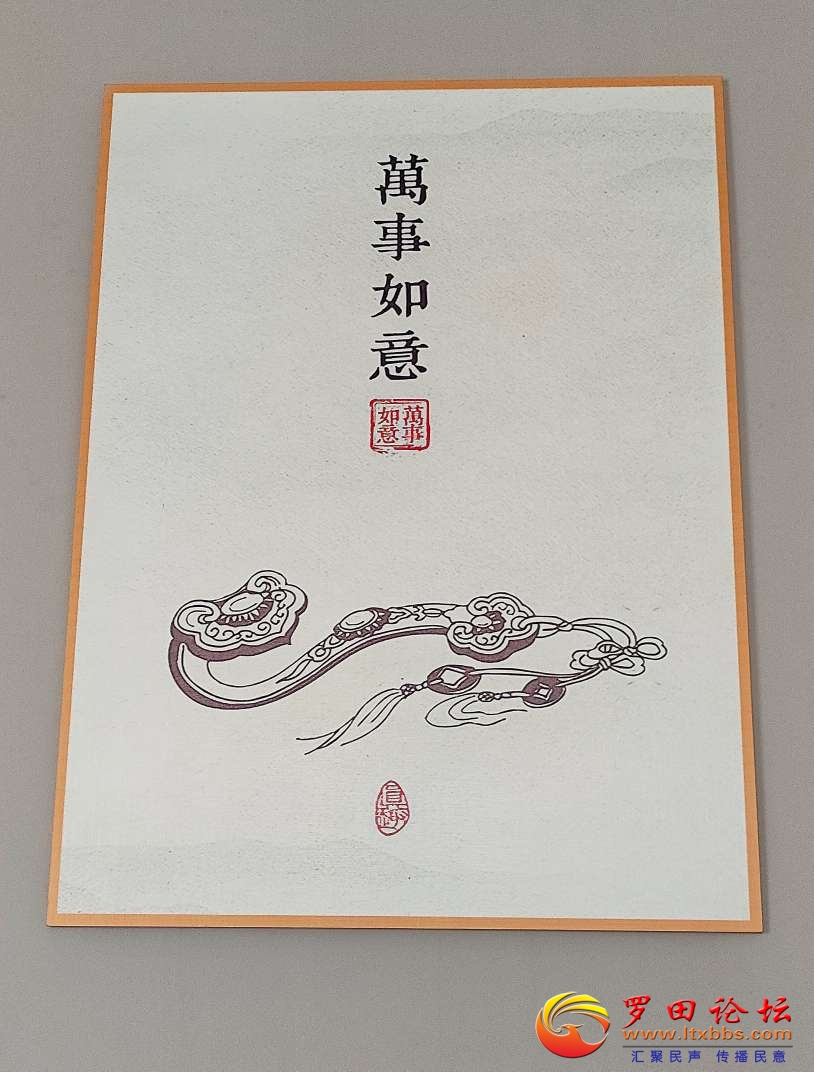 萬事如意
萬事
如意
罗田论坛
www.ltxbbs.com
汇聚民声 传播民意